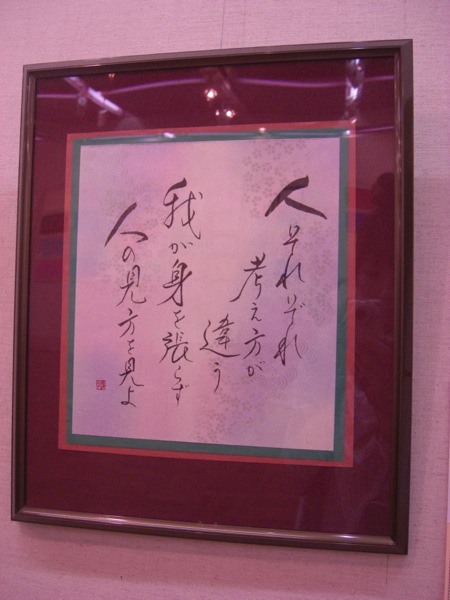 人それぞれ
考え方が
違う
我が身を張らず
人の見方を見よ